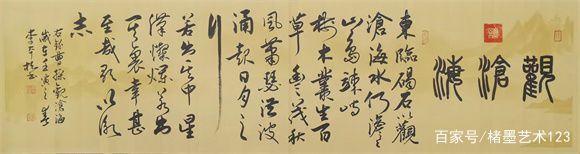 觀滄海
東臨碣石以觀
滄海水何澹澹
山島竦峙
樹木叢生百
草豐茂秋
風蕭瑟洪波
涌起日月之
行
若出其中星
漢燦爛若出
其裏幸甚
至哉歌以詠
志
右錄曹操觀滄海
歲在壬寅之春
百家号/楮墨艺术123